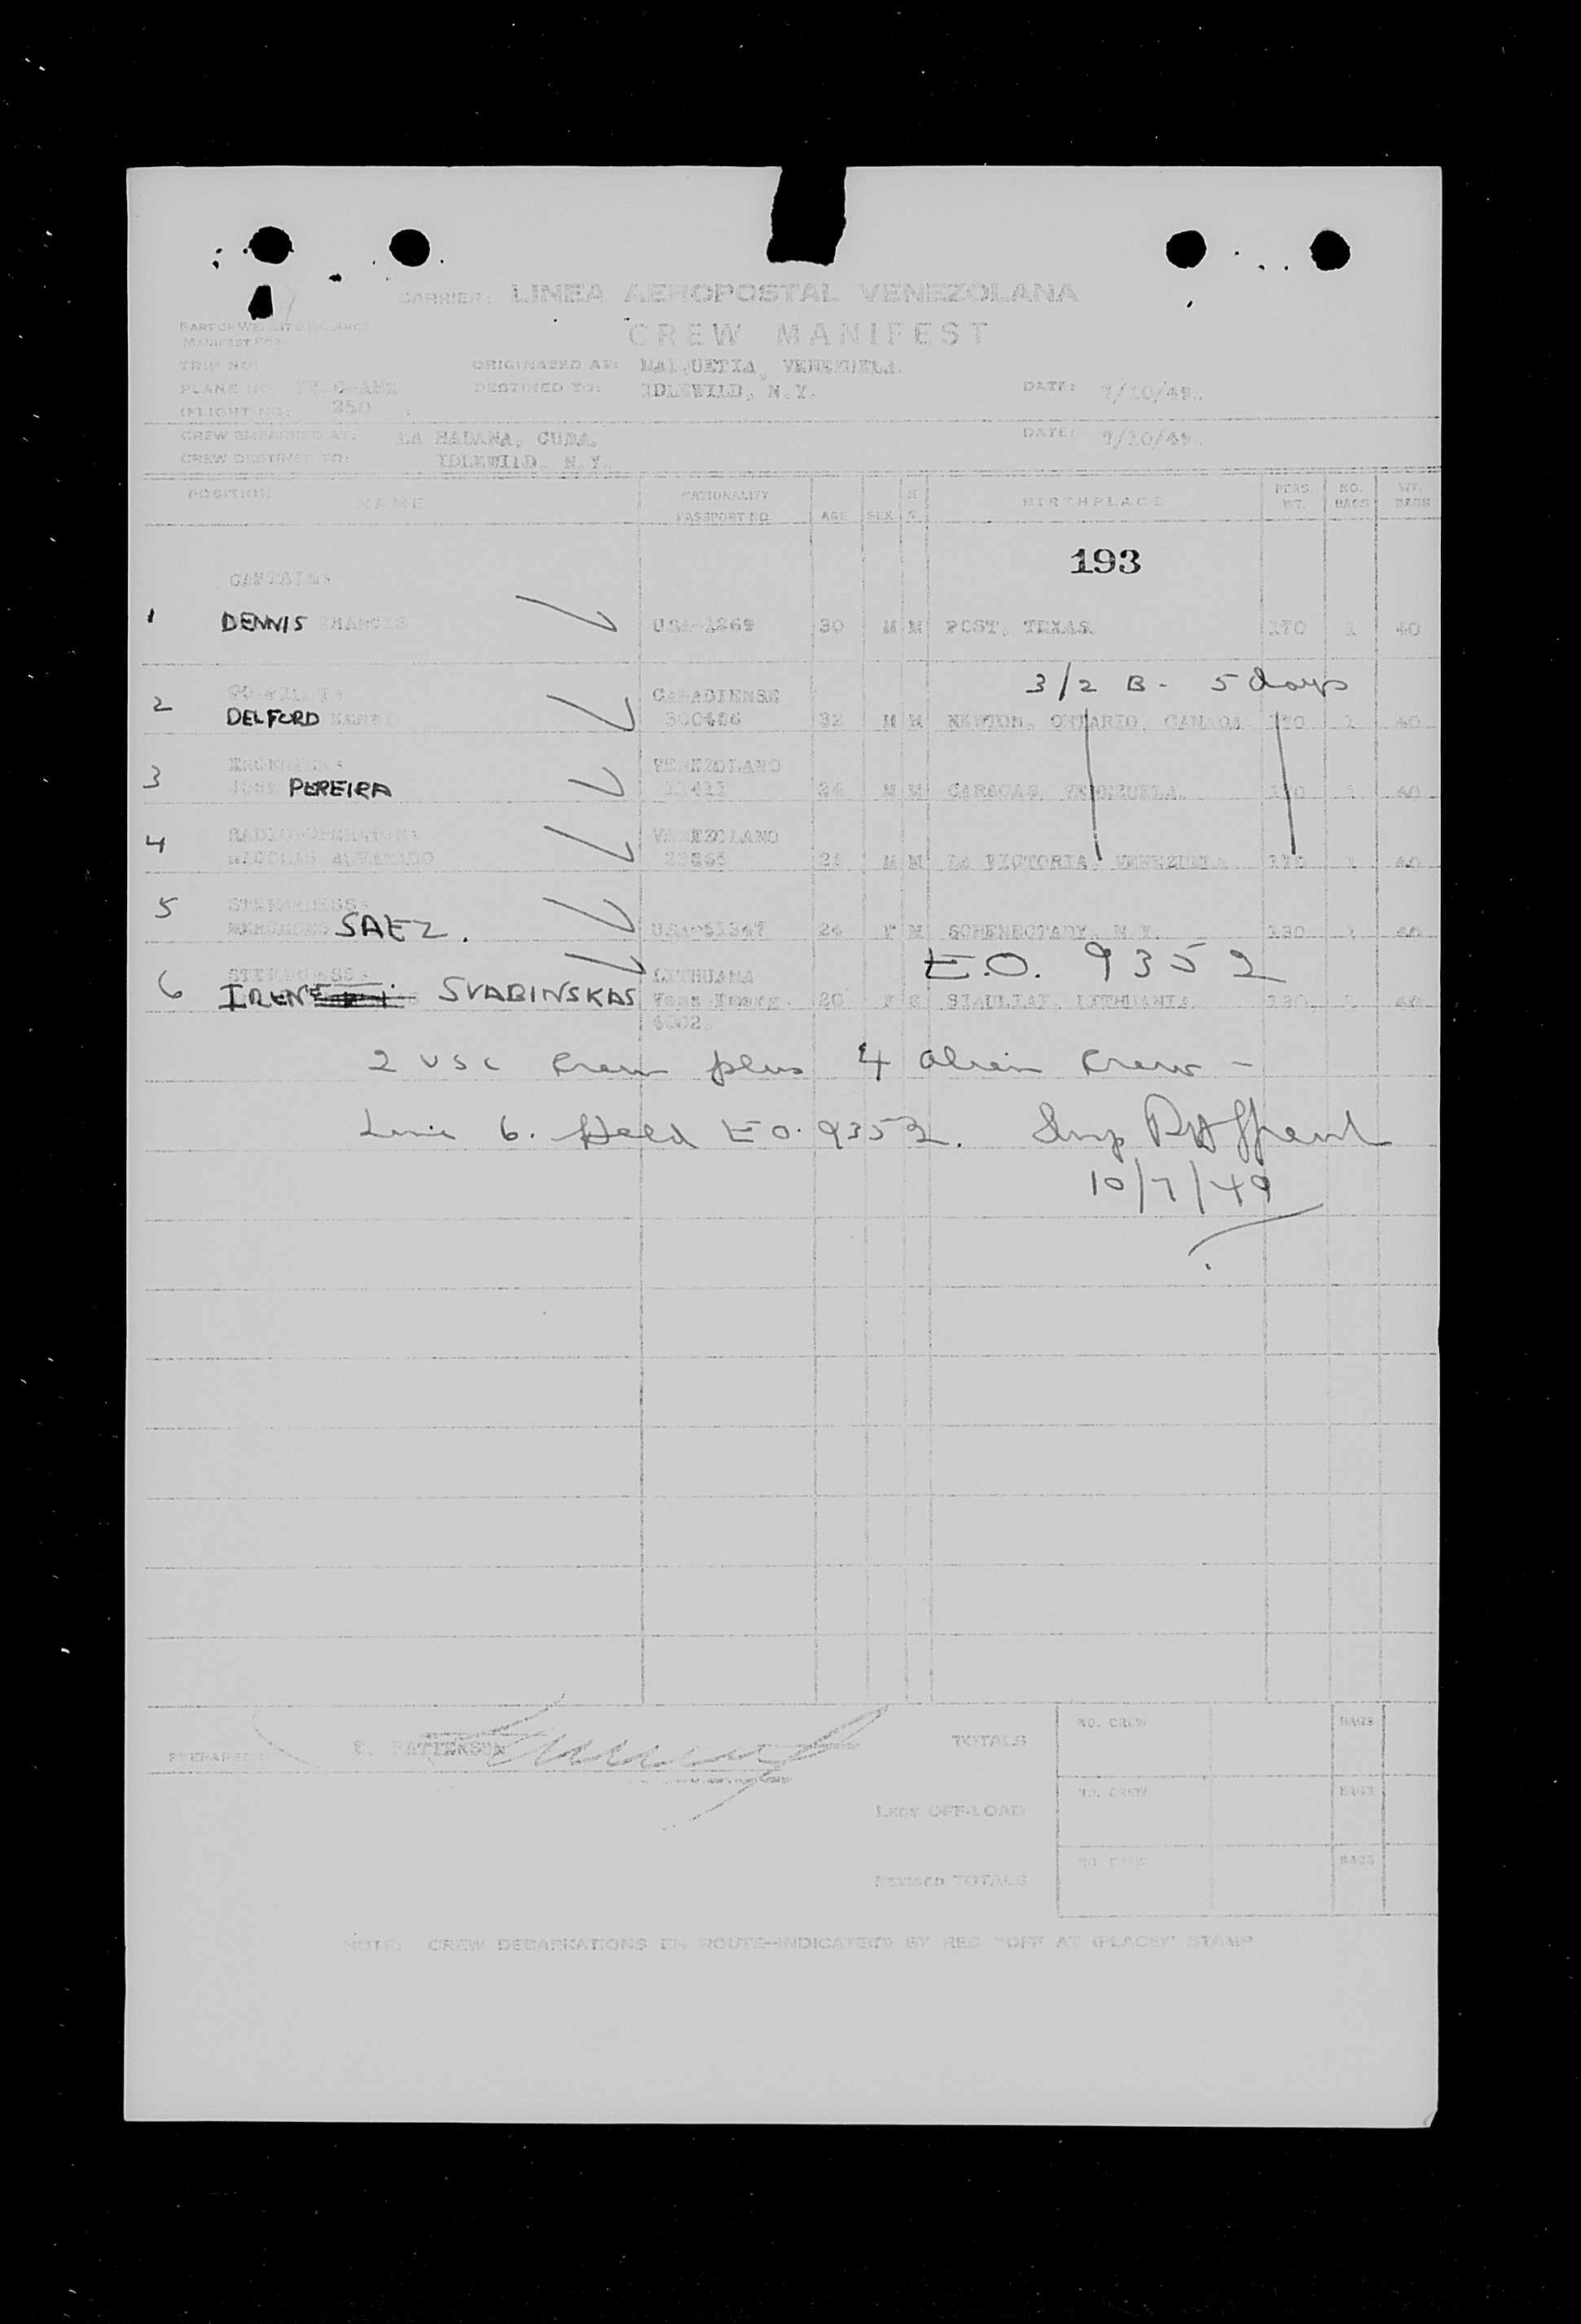 CARRIER: LINEA AEROPOSTAL VENEZOLANA
CREW MANIFEST
PART OF WEIGHT & BALANCE
MANIFEST FOR
TRIP NO:
ORIGINATED AT: MAIQUETIA, VENEZUELA.
PLANE NO.
DESTINED TO: IDLEWILD, N.Y.
DATE: 7/10/49.
(FLIGHT NO. 250
CREW EMBARKED AT: LA HABANA, CUBA.
DATE: 7/10/49.
CREW DESTINED TO: IDLEWILD. N.Y.
POSITION NAME NATIONALITY PASSPORT NO. AGE SEX M S BIRTHPLACE PERS. WT. NO. BAGS WT. BAGS
193
CAPTAIN:
1 DENNIS FRANCIS 30 M M POST, TEXAS. 170 1 40
3/2 B - 5 days
2 CANADIENSE
DELFORD 32 M M ONTARIO, CANADA. 170 1 40
3 VENEZOLANO
PEREIRA M M CARACAS, VENEZUELA. 170 1 40
4 RADIO-OPERATOR: VENEZOLANO
NICOLAS ALVARADO M M LA VICTORIA, VENEZUELA 170 1 40
5 STEWARDESS:
MERCEDES SAEZ. 24 F M SCHENECTADY, N.Y. 130 1 40
E.O. 9352
6 STEWARDESS: LITHUANIA
IRENE SVABINSKAS 20 F S SIAULIAI, LITHUANIA 130 40
4002.
2 USC Crew plus 4 alien Crew -
Line 6. Held E O. 9352. Insp
10/7/49
PREPARED BY PATTERSON
TOTALS NO. CREW BAGS
LESS OFF-LOAD NO. CREW BAGS
REVISED TOTALS NO. CREW BAGS
NOTE: CREW DEBARKATIONS EN ROUTE—INDICATE(D) BY RED "OFF AT (PLACE)" STAMP